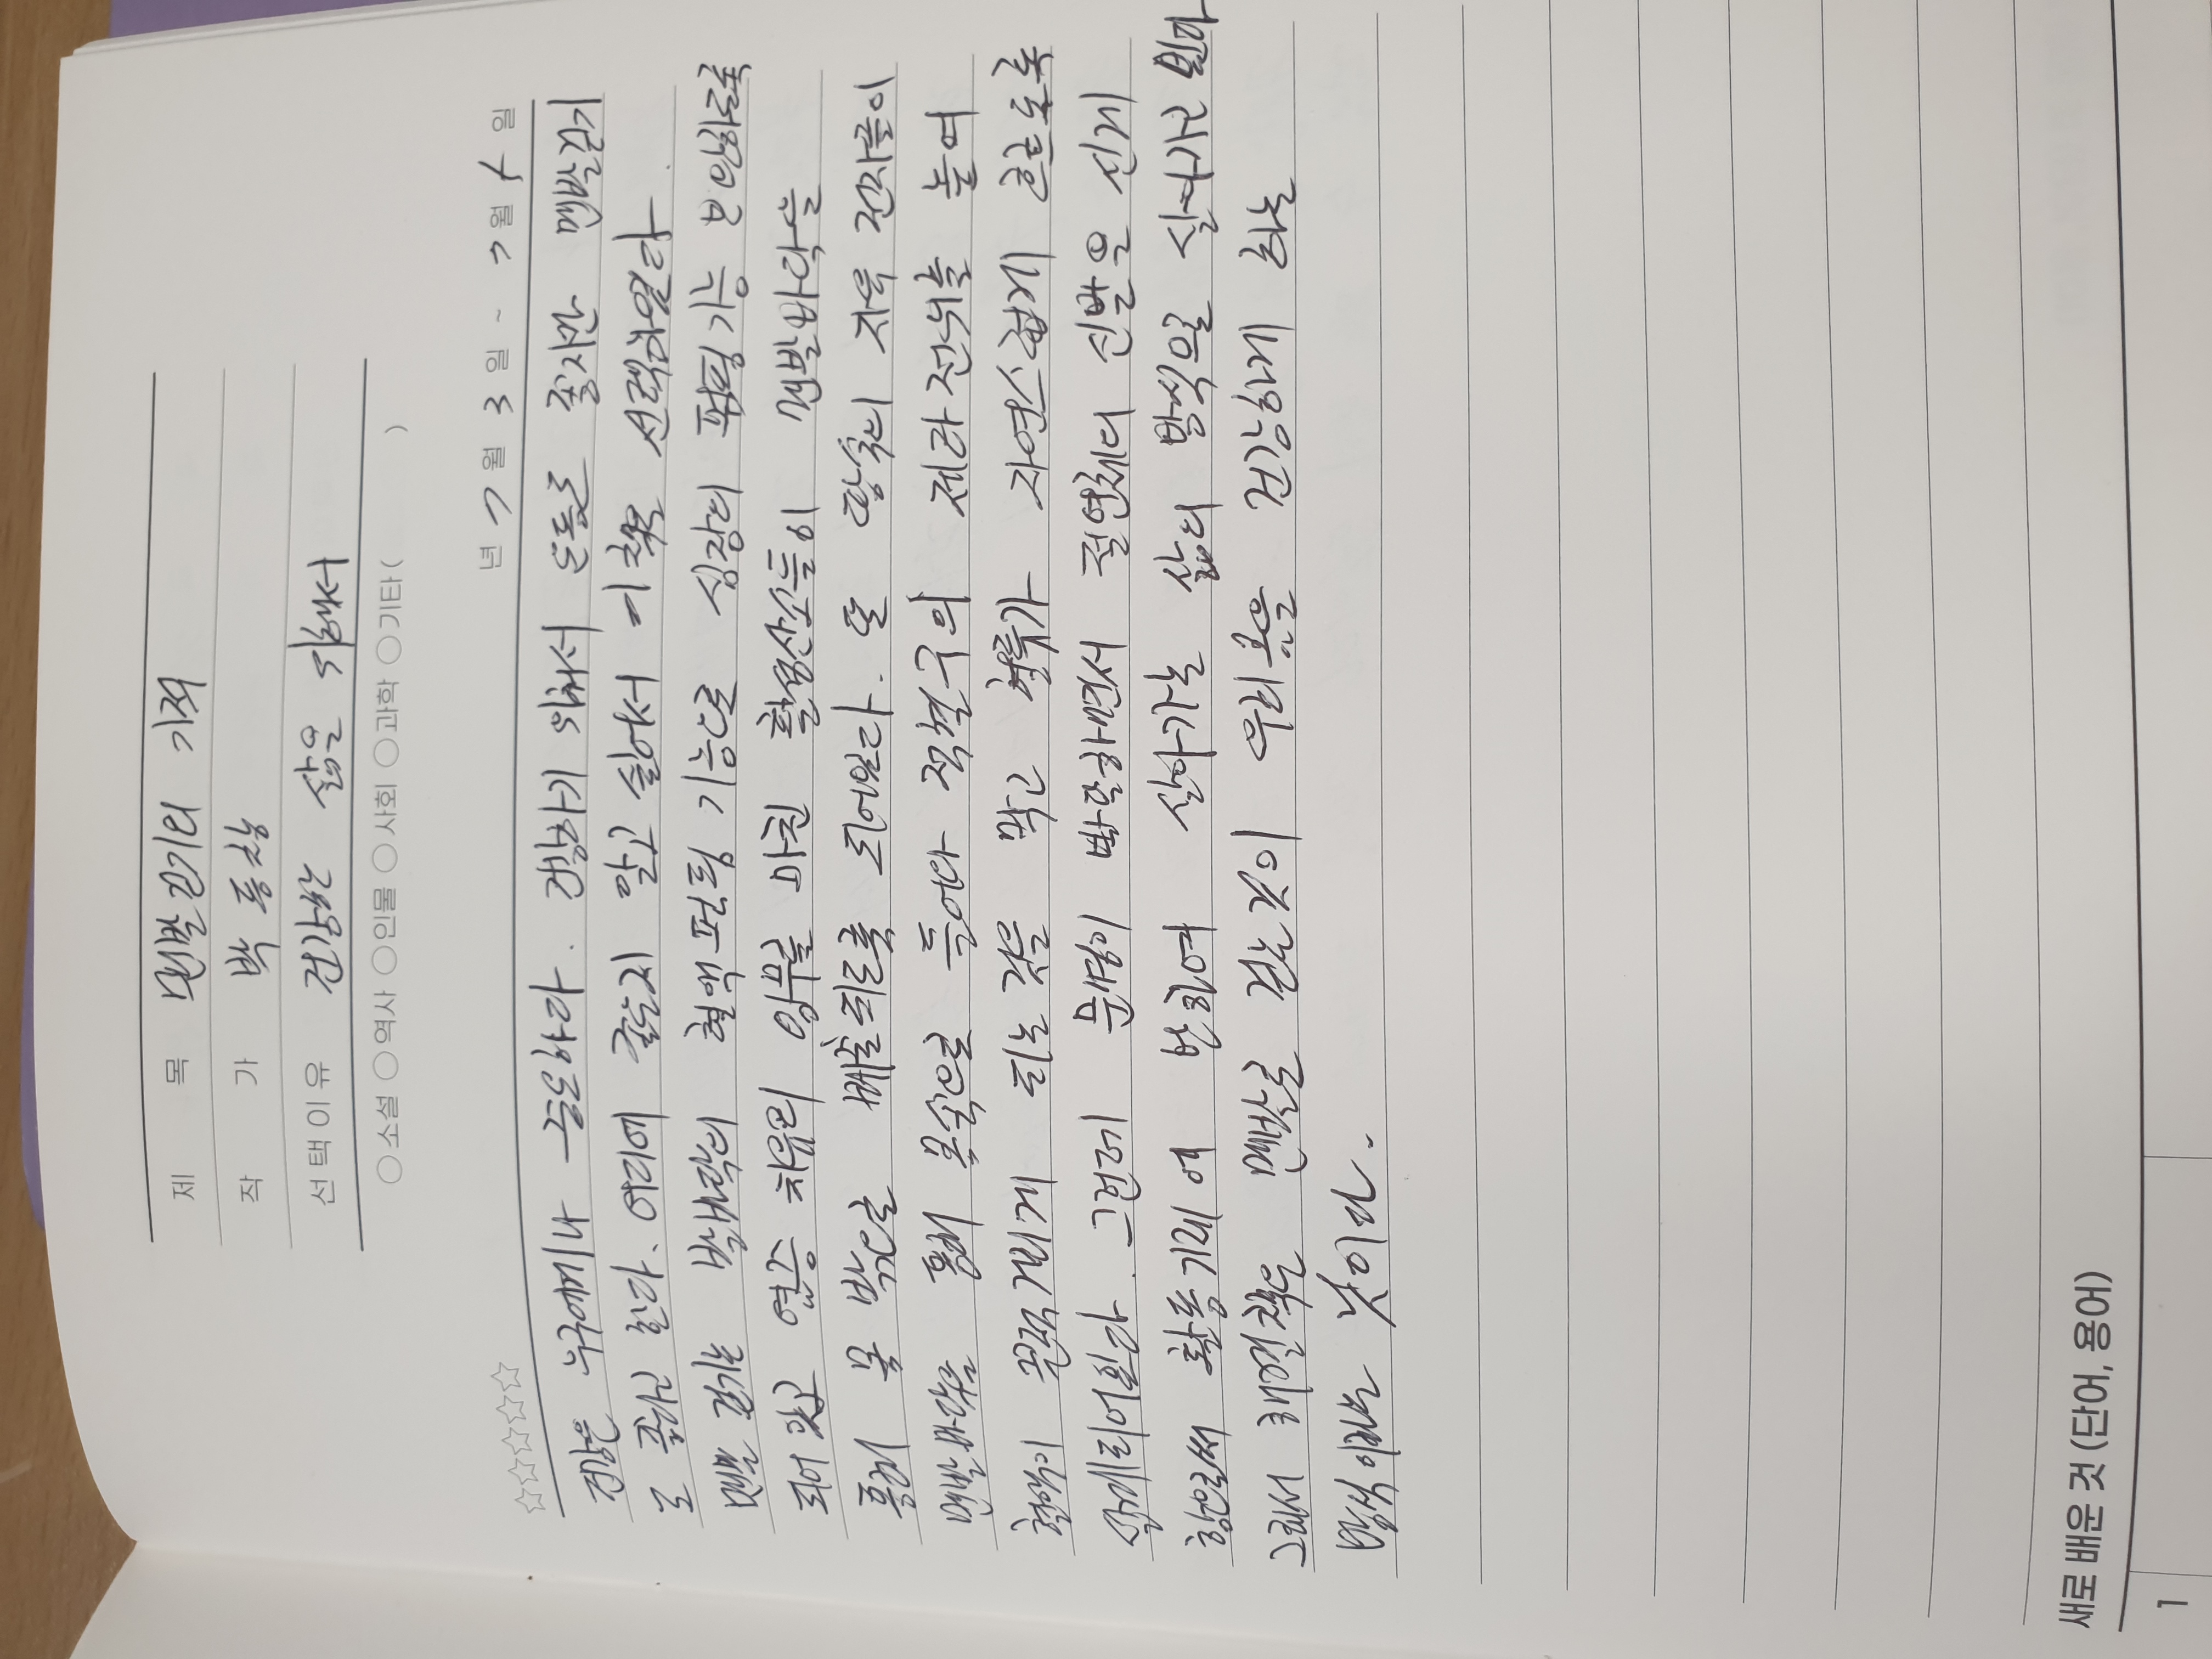 제 목 맨발걷기의 기적
작 가 박동창
선택이유 건강한 삶을 위해서
○소설 ○역사 ○인물 ○사회 ○과학 ○기타( )
년 7월 3일 ~ 7월 5일
건강은 누구에게나 중요하다. 건강하기 위해서 운동도 좋지만 맨발걷기
도 좋다고 한다. 어디에 좋는지 알고 싶어서 이 책을 선택하였다.
맨발 걷기는 발바닥의 혈액펌핑 기능으로 심장의 펌핑기능 보완하도록
되어 있고 염증 치유의 임무를 마친 활성산소들이 맨발바닥을
통해 몸 밖으로 배출되도록 되어있다. 또 땅속의 자유 전자들이
맨발바닥을 통해 몸속으로 들어와 적혈구의 제타전위를 높여
혈액이 끈적거리게 되는 것을 막고 혈류가 자연스럽게 흐르도록
설계되어있다. 그런데 문명이 발달하면서 절연체의 신발을 신게
함으로써 활동기제에 반하여 살아가는 삶의 방식으로 살아가고 있다
그래서 해결책은 맨발로 걷는것이 우리몸을 건강하게 하는
방식이라는 것이다.
새로 배운 것 (단어, 용어)
1